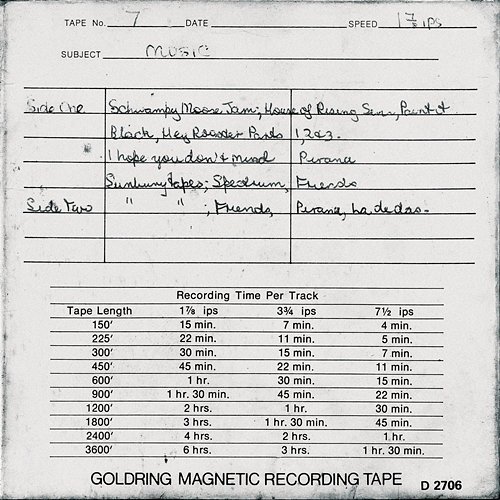 TAPE No. 7 DATE SPEED 1 7/8 ips
SUBJECT MUSIC
Side One Schwampy Moose Jam; House of Rising Sun, Paint it
Black, Hey Rooster Parts 1, 2 & 3.
I hope you don't mind Pirana
Sunbury tapes; Spectrum, Friends
Side Two " " ; Friends, Pirana, La de das.
Recording Time Per Track
Tape Length 1⅞ ips 3¾ ips 7½ ips
150' 15 min. 7 min. 4 min.
225' 22 min. 11 min. 5 min.
300' 30 min. 15 min. 7 min.
450' 45 min. 22 min. 11 min.
600' 1 hr. 30 min. 15 min.
900' 1 hr. 30 min. 45 min. 22 min.
1200' 2 hrs. 1 hr. 30 min.
1800' 3 hrs. 1 hr. 30 min. 45 min.
2400' 4 hrs. 2 hrs. 1 hr.
3600' 6 hrs. 3 hrs. 1 hr. 30 min.
GOLDRING MAGNETIC RECORDING TAPE D 2706